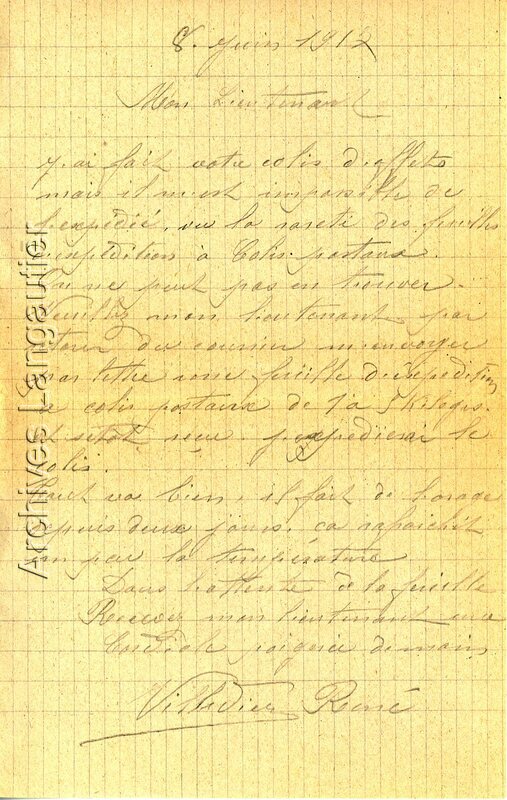 8 Juin 1912
Mon Lieutenant
J'ai fait votre colis d'effets
mais il m'est impossible de
l'expédié, vu la rareté des feuilles
d'expédition à Colis postaux.
On ne peut pas en trouver.
Veuillez mon lieutenant par
retour du courrier m'envoyer
par lettre une feuille d'expédition
de colis postaux de 1 à 5 kilogs.
Sitôt reçue j'expédierai le
colis.
Tout va bien, il fait de l'orage
depuis deux jours, ca rafraichit
un peu la température
Dans l'attente de la feuille
Recevez mon lieutenant une
Cordiale poignée de main
René
Archives Langautier